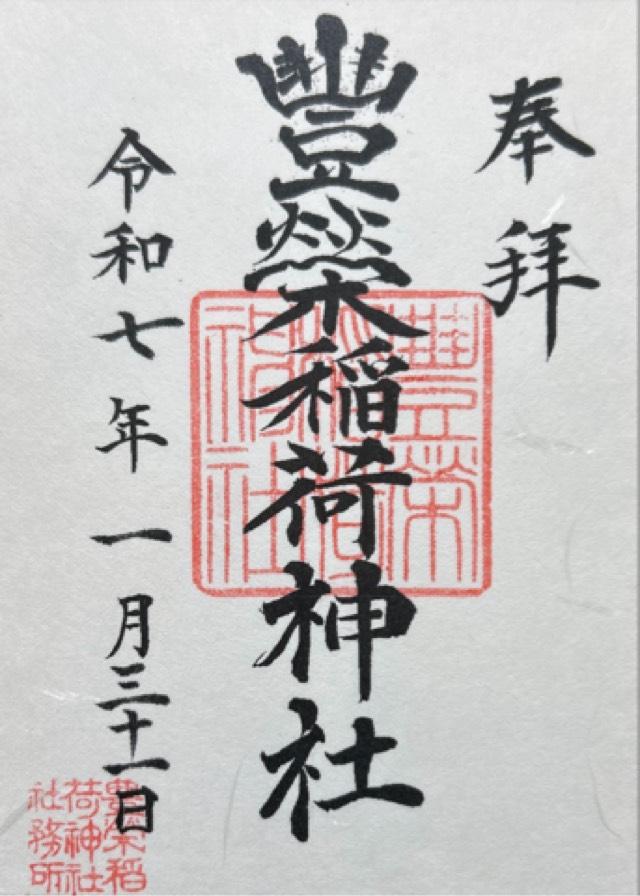 奉拝
豐榮稲荷神社
令和七年一月三十一日
豊榮稲荷神社
豊榮稲荷神社社務所